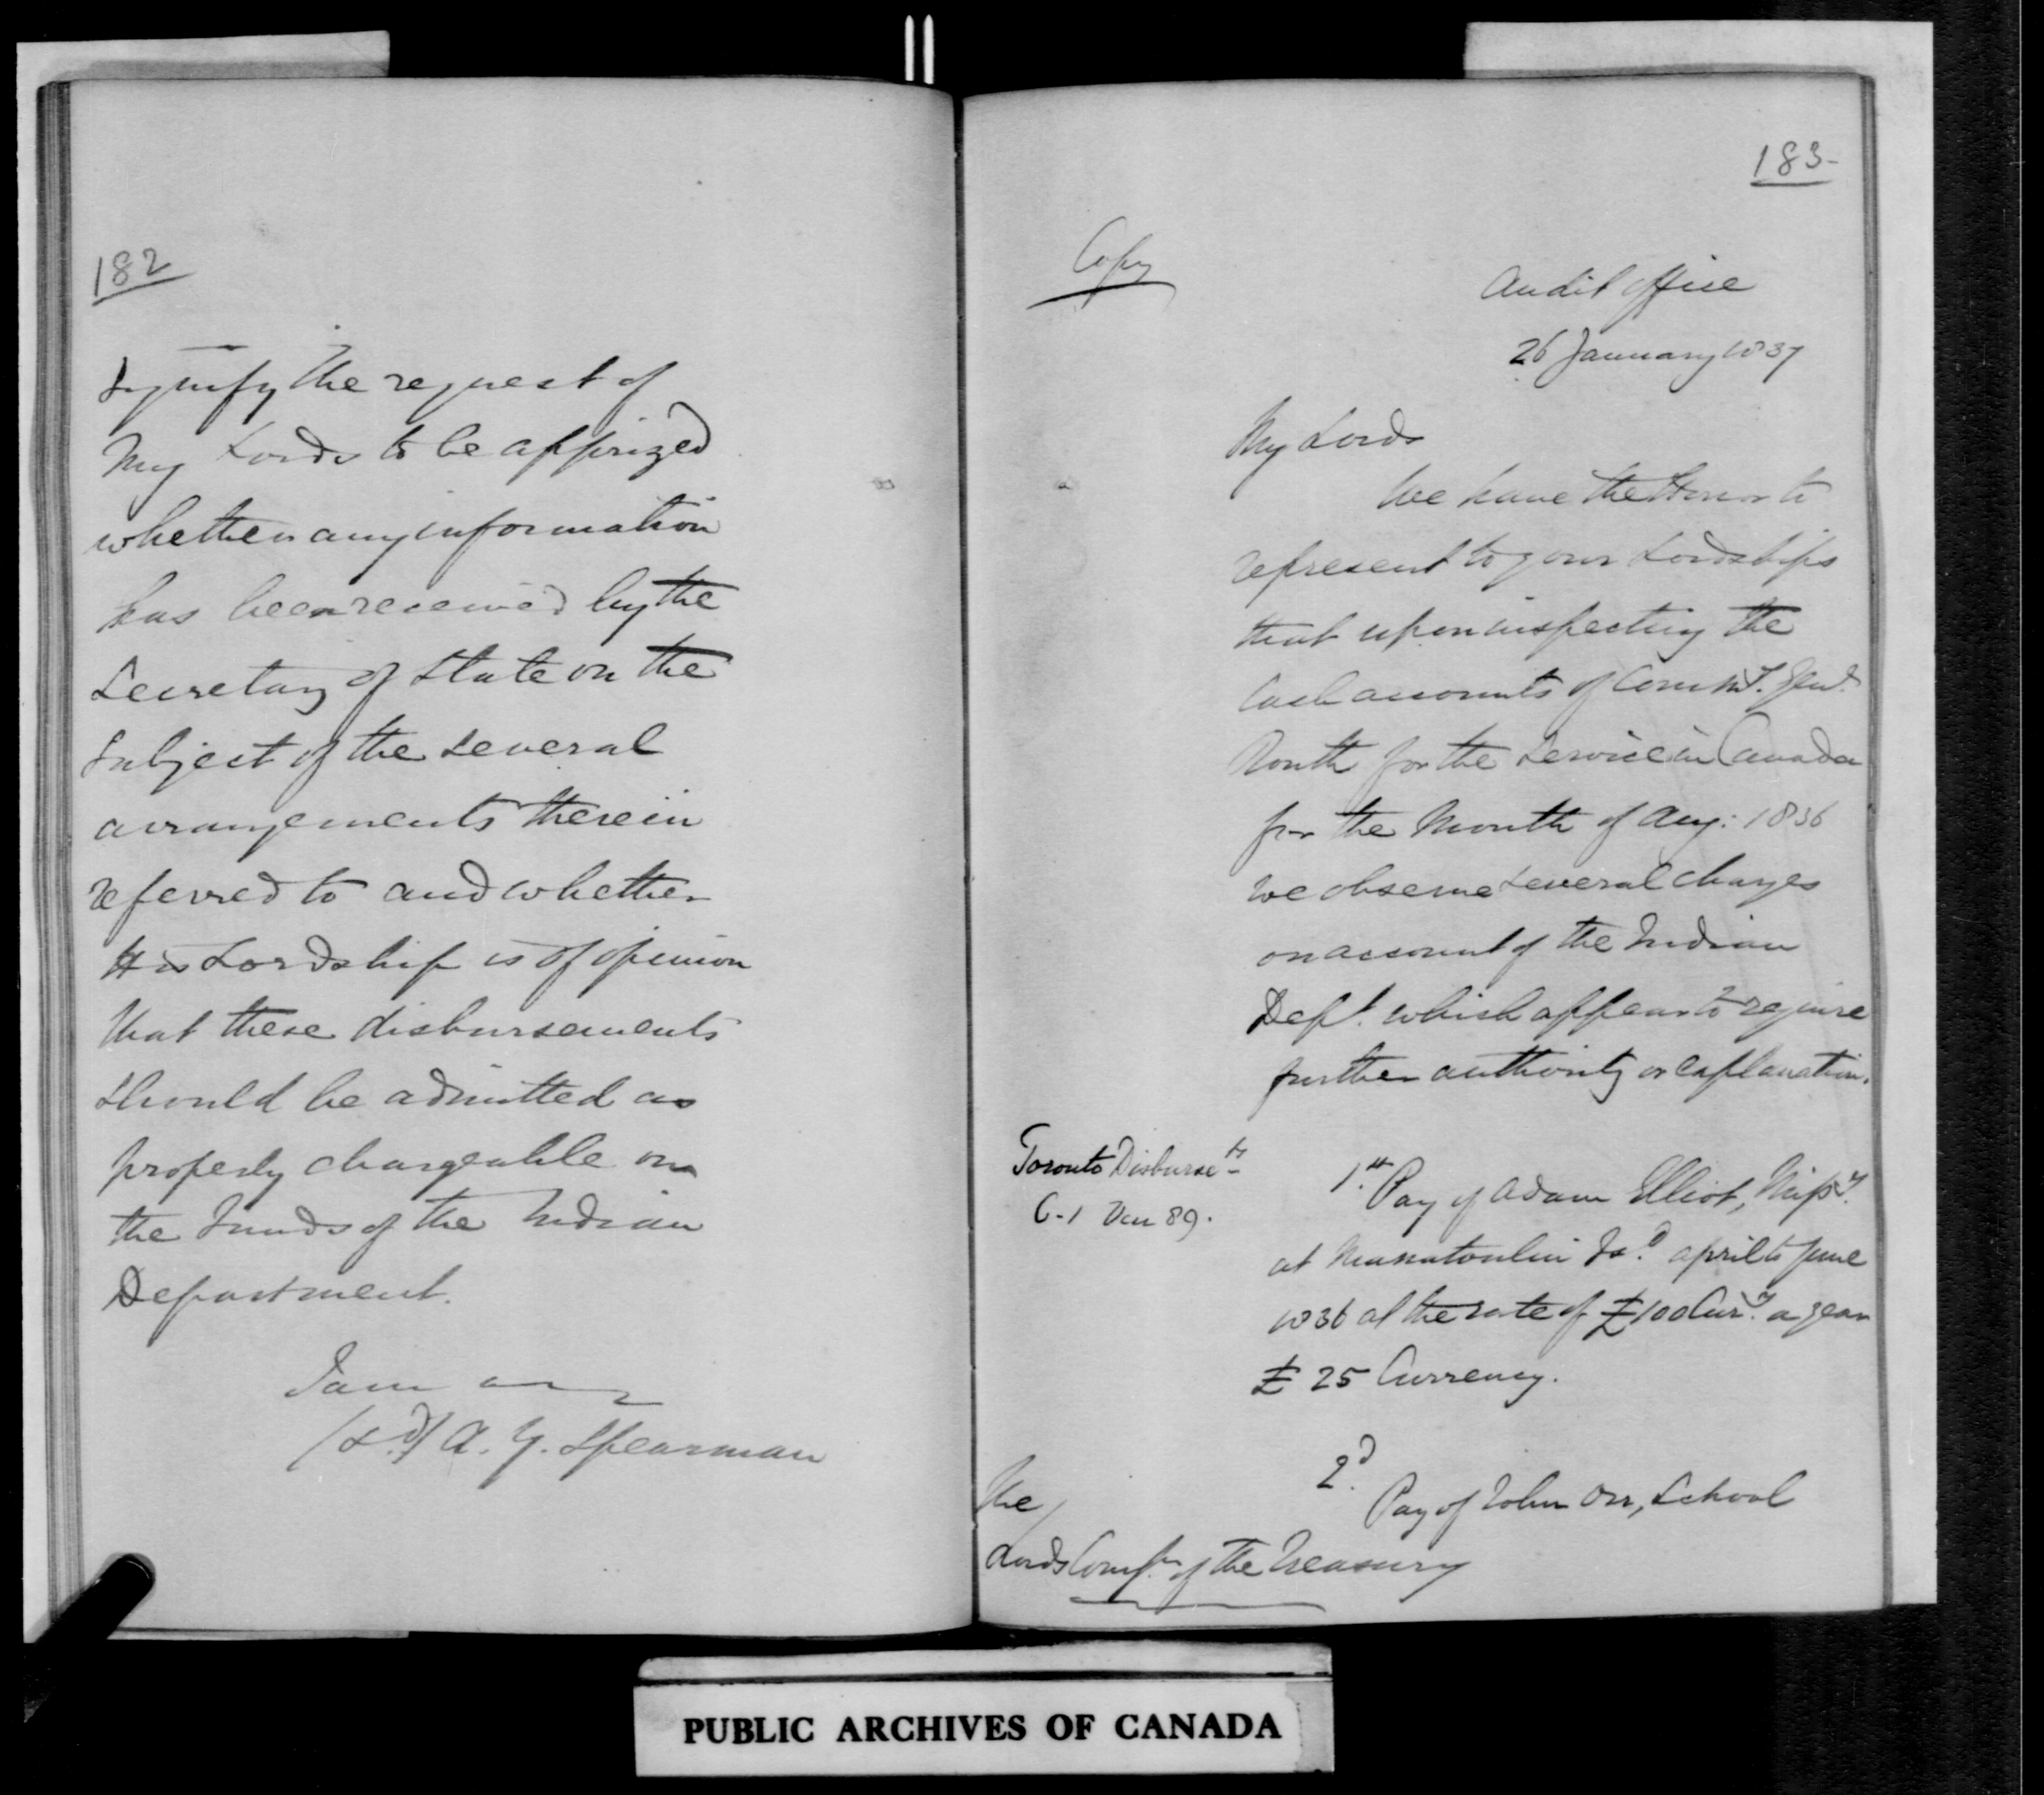 182
signify the request of
My Lords to be apprized
whether any information
has been received by the
Secretary of State on the
Subject of the several
arrangements therein
referred to and whether
His Lordship is of opinion
that these disbursements
should be admitted as
properly chargeable on
the Funds of the Indian
Department.
I am
(sd) A. Y. Spearman
183-
Copy
Audit Office
26 January 1837
My Lords
We have the Honor to
represent to your Lordships
that upon inspecting the
Cash accounts of Commy. Genl.
Routh for the Service in Canada
for the Month of Aug: 1836
we observe several charges
on account of the Indian
Dept. which appear to require
further authority or explanation.
Toronto Disbursets
C-1 Vou 89.
1st. Pay of Adam Elliot, Missy.
at Manatoulin Isd. April to June
1836 at the rate of £100 Cury. a year
£25 Currency.
2d. Pay of John Orr, School
The
Lords Comrs. of the Treasury
PUBLIC ARCHIVES OF CANADA